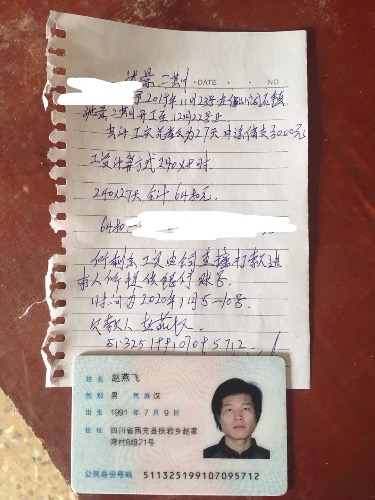 DATE
NO
于2019年11月23号在
开工至12月22号止
共计工天总数为27天
工资计算方式240×计时
240×27天 合计6480元
6480-
何剩余工资由公司直接打款进
本人所提供银行账号
时间为2020年1月5-10号
欠款人 赵燕飞
511325199107095712
姓名 赵燕飞
性别 男 民族 汉
出生 1991年7月9日
住址 四川省西充县扶君乡赵家
湾村8组21号
公民身份号码 511325199107095712